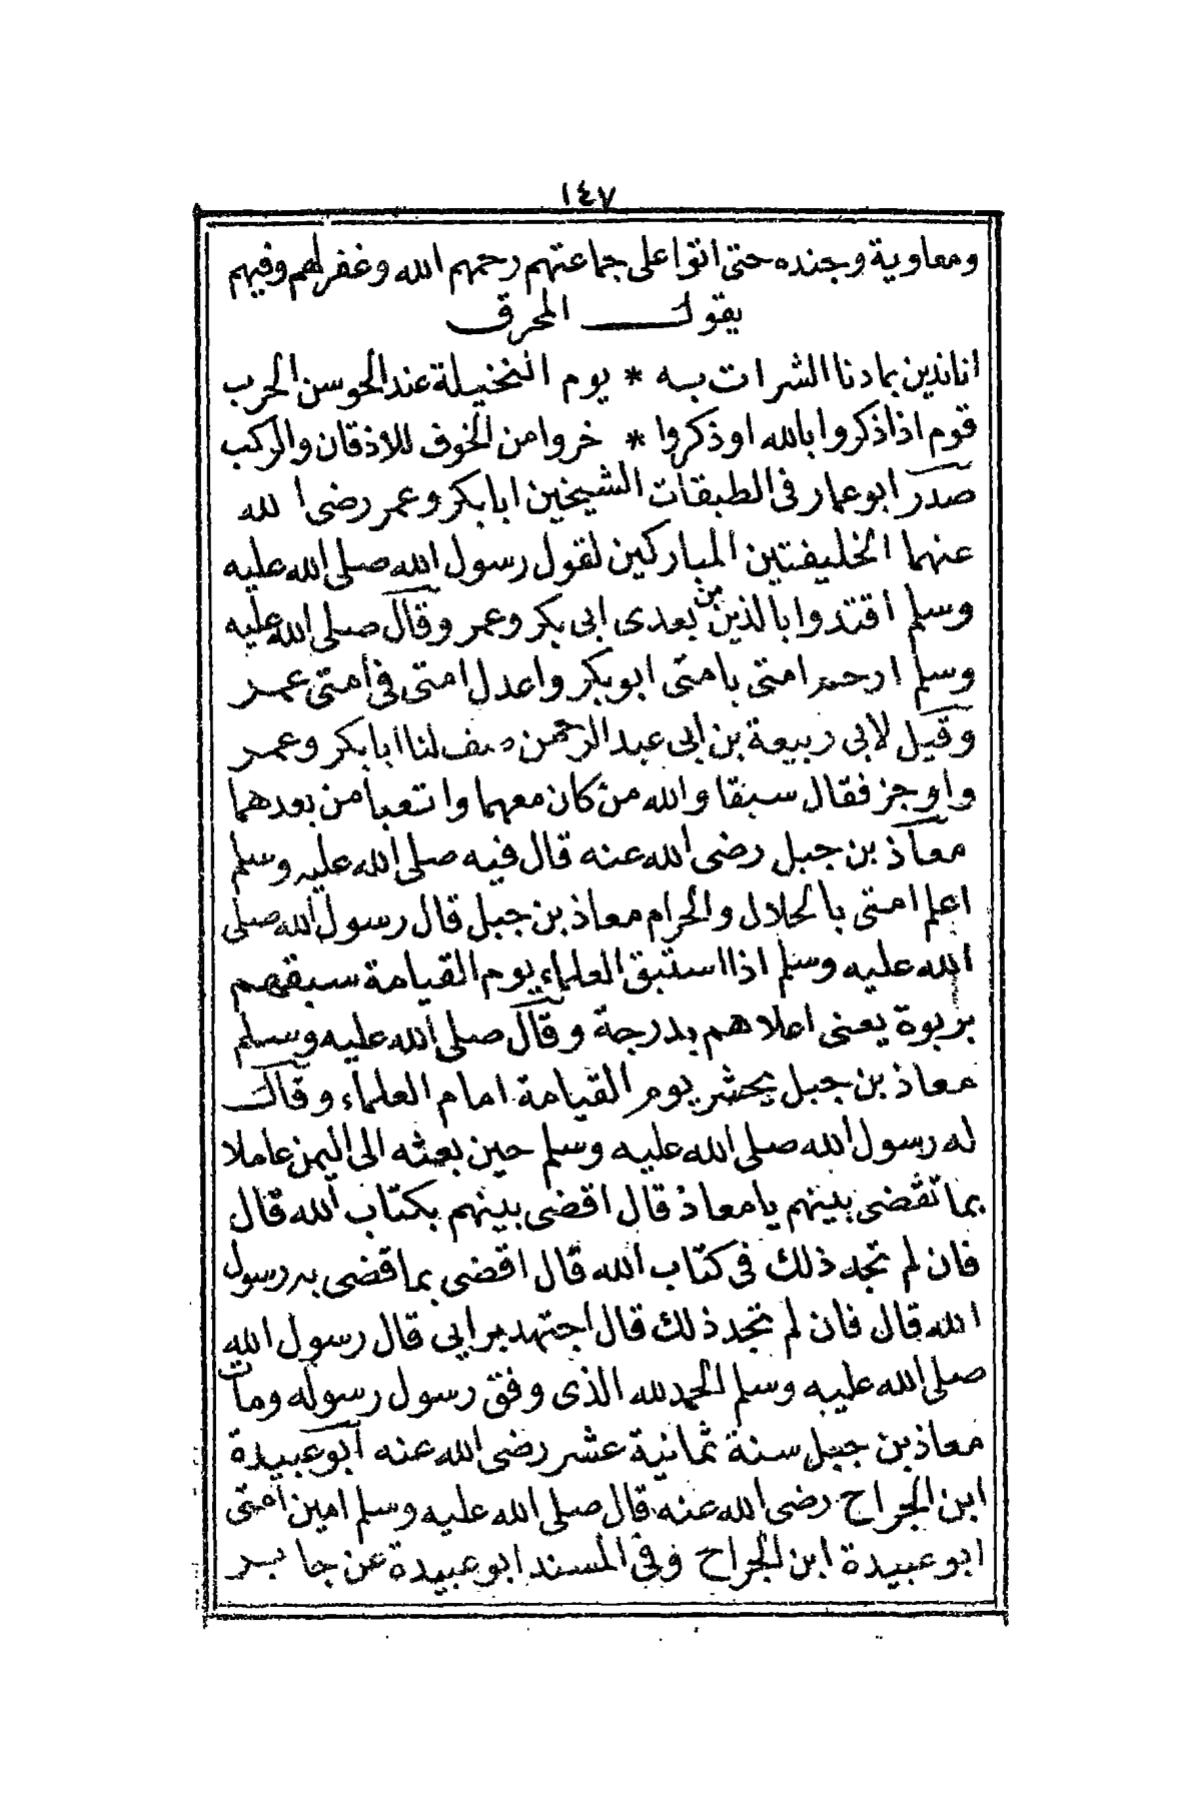 ١٤٧
ومعاوية وجنده حتى اتوا على جماعتهم رحمهم الله وغفرلهم وفيهم
يقول المحرق
انا ندين بما دنا الشرات به * يوم النخيلة عند الجوسن الحرب
قوم اذا ذكروا بالله او ذكروا * خروا من الخوف للاذقان والركب
صدر ابو عمار فى الطبقات الشيخين ابا بكر وعمر رضى الله
عنهما الخليفتين المباركين لقول رسول الله صلى الله عليه
وسلم اقتدوا بالذين من بعدى ابى بكر وعمر وقال صلى الله عليه
وسلم ارحم امتى بامتى ابو بكر واعدل امتى فى امتى عمر
وقيل لابى ربيعة بن ابى عبد الرحمن صف لنا ابا بكر وعمر
واوجز فقال سبقا والله من كان معهما واتعبا من بعدهما
معاذ بن جبل رضى الله عنه قال فيه صلى الله عليه وسلم
اعلم امتى بالحلال والحرام معاذ بن جبل قال رسول الله صلى
الله عليه وسلم اذا استبق العلماء يوم القيامة سبقهم
بربوة يعنى اعلاهم بدرجة وقال صلى الله عليه وسلم
معاذ بن جبل يحشر يوم القيامة امام العلماء وقال
له رسول الله صلى الله عليه وسلم حين بعثه الى اليمن عاملا
بما تقضى بينهم يا معاذ قال اقضى بينهم بكتاب الله قال
فان لم تجد ذلك فى كتاب الله قال اقضى بما قضى به رسول
الله قال فان لم تجد ذلك قال اجتهد برايى قال رسول الله
صلى الله عليه وسلم الحمد لله الذى وفق رسول رسوله ومات
معاذ بن جبل سنة ثمانية عشر رضى الله عنه ابو عبيدة
ابن الجراح رضى الله عنه قال صلى الله عليه وسلم امين امتى
ابو عبيدة ابن الجراح وفى المسند ابو عبيدة عن جابر